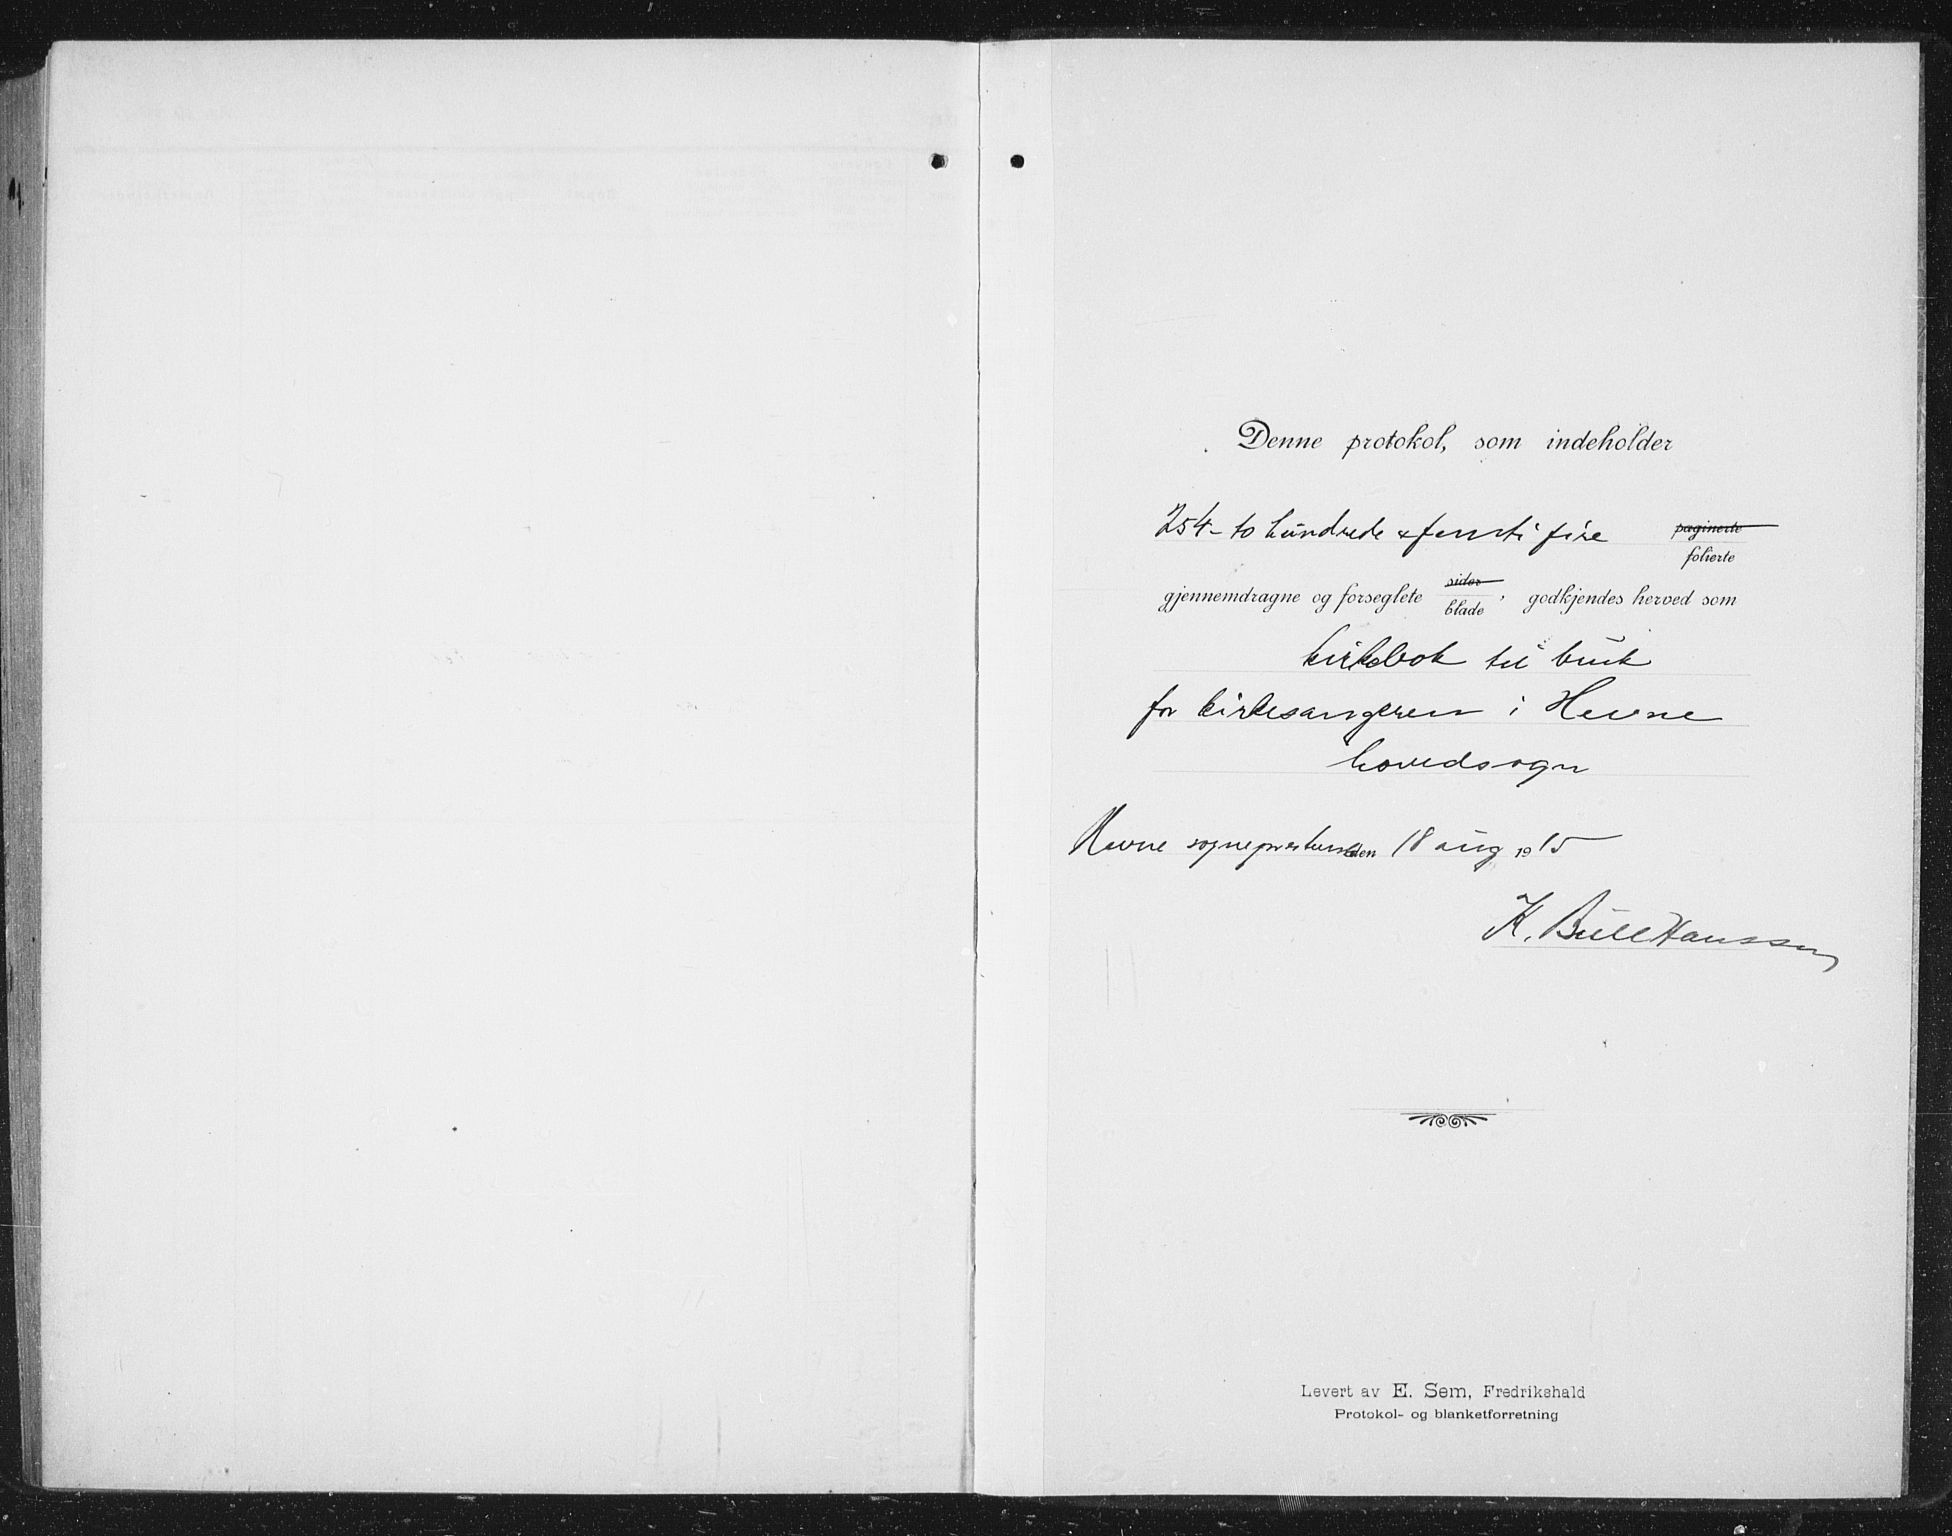 Denne protokol, som indeholder
254 - to hundrede & femti fire paginerte
folierte
gjennemdragne og forseglete sider blade, godkjendes herved som
kirkebok til bruk
for kirkesangeren i Hevne
hovedsogn
Hevne sogneprestemb. den 18 aug 1915
K. Bull Hanssen
Levert av E. Sem, Fredrikshald
Protokol- og blanketforretning